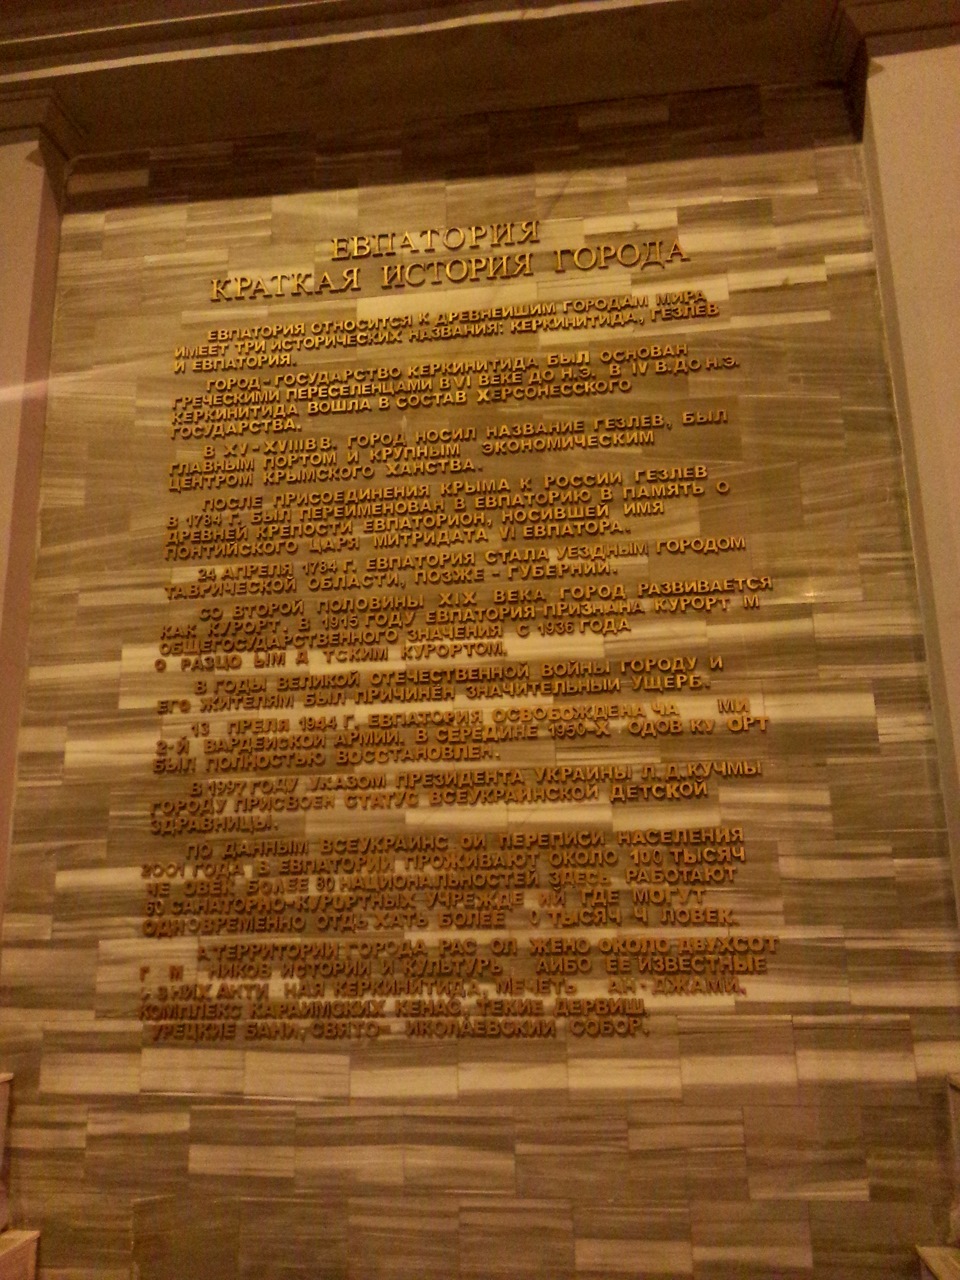 ЕВПАТОРИЯ
КРАТКАЯ ИСТОРИЯ ГОРОДА
ЕВПАТОРИЯ ОТНОСИТСЯ К ДРЕВНЕИШИМ ГОРОДАМ МИРА
ИМЕЕТ ТРИ ИСТОРИЧЕСКИХ НАЗВАНИЯ: КЕРКИНИТИДА, ГЕЗЛЕВ
И ЕВПАТОРИЯ.
ГОРОД-ГОСУДАРСТВО КЕРКИНИТИДА БЫЛ ОСНОВАН
ГРЕЧЕСКИМИ ПЕРЕСЕЛЕНЦАМИ В VI ВЕКЕ ДО Н.Э. В IV В.ДО Н.Э.
КЕРКИНИТИДА ВОШЛА В СОСТАВ ХЕРСОНЕССКОГО
ГОСУДАРСТВА.
В XV-XVIIIВВ. ГОРОД НОСИЛ НАЗВАНИЕ ГЕЗЛЕВ, БЫЛ
ГЛАВНЫМ ПОРТОМ И КРУПНЫМ ЭКОНОМИЧЕСКИМ
ЦЕНТРОМ КРЫМСКОГО ХАНСТВА.
ПОСЛЕ ПРИСОЕДИНЕНИЯ КРЫМА К РОССИИ ГЕЗЛЕВ
В 1784 Г. БЫЛ ПЕРЕИМЕНОВАН В ЕВПАТОРИЮ В ПАМЯТЬ О
ДРЕВНЕЙ КРЕПОСТИ ЕВПАТОРИОН, НОСИВШЕЙ ИМЯ
ПОНТИЙСКОГО ЦАРЯ МИТРИДАТА VI ЕВПАТОРА.
24 АПРЕЛЯ 1784 Г. ЕВПАТОРИЯ СТАЛА УЕЗДНЫМ ГОРОДОМ
ТАВРИЧЕСКОЙ ОБЛАСТИ, ПОЗЖЕ - ГУБЕРНИИ.
СО ВТОРОЙ ПОЛОВИНЫ XIX ВЕКА ГОРОД РАЗВИВАЕТСЯ
КАК КУРОРТ. В 1915 ГОДУ ЕВПАТОРИЯ ПРИЗНАНА КУРОРТ М
ОБЩЕГОСУДАРСТВЕННОГО ЗНАЧЕНИЯ С 1936 ГОДА
О РАЗЦО ЫМ Д ТСКИМ КУРОРТОМ.
В ГОДЫ ВЕЛИКОЙ ОТЕЧЕСТВЕННОЙ ВОЙНЫ ГОРОДУ И
ЕГО ЖИТЕЛЯМ БЫЛ ПРИЧИНЁН ЗНАЧИТЕЛЬНЫЙ УЩЕРБ.
13 ПРЕЛЯ 1944 Г. ЕВПАТОРИЯ ОСВОБОЖДЕНА ЧА МИ
2-Й ВАРДЕЙСКОЙ АРМИИ. В СЕРЕДИНЕ 1950-Х ОДОВ КУ ОРТ
БЫЛ ПОЛНОСТЬЮ ВОССТАНОВЛЕН.
В 1997 ГОДУ УКАЗОМ ПРЕЗИДЕНТА УКРАИНЫ Л.Д.КУЧМЫ
ГОРОДУ ПРИСВОЕН СТАТУС ВСЕУКРАИНСКОЙ ДЕТСКОЙ
ЗДРАВНИЦЫ.
ПО ДАННЫМ ВСЕУКРАИНС ОЙ ПЕРЕПИСИ НАСЕЛЕНИЯ
2001 ГОДА В ЕВПАТОРИИ ПРОЖИВАЮТ ОКОЛО 100 ТЫСЯЧ
ЧЕ ОВЕК БОЛЕЕ 80 НАЦИОНАЛЬНОСТЕЙ ЗДЕСЬ РАБОТАЮТ
60 САНАТОРНО-КУРОРТНЫХ УЧРЕЖДЕ ИЙ ГДЕ МОГУТ
ОДНОВРЕМЕННО ОТДЫХАТЬ БОЛЕЕ 0 ТЫСЯЧ Ч ЛОВЕК.
А ТЕРРИТОРИИ ГОРОДА РАС ОЛ ЖЕНО ОКОЛО ДВУХСОТ
НИКОВ ИСТОРИИ И КУЛЬТУРЫ ИБО ЕЕ ИЗВЕСТНЫЕ
ИЗ НИХ АНТИ НАЯ КЕРКИНИТИДА, МЕЧЕТЬ АН-ДЖАМИ,
КОМПЛЕКС КАРАИМСКИХ КЕНАС, ТЕКИЕ ДЕРВИШ
УРЕЦКИЕ БАНИ, СВЯТО- ИКОЛАЕВСКИЙ СОБОР.